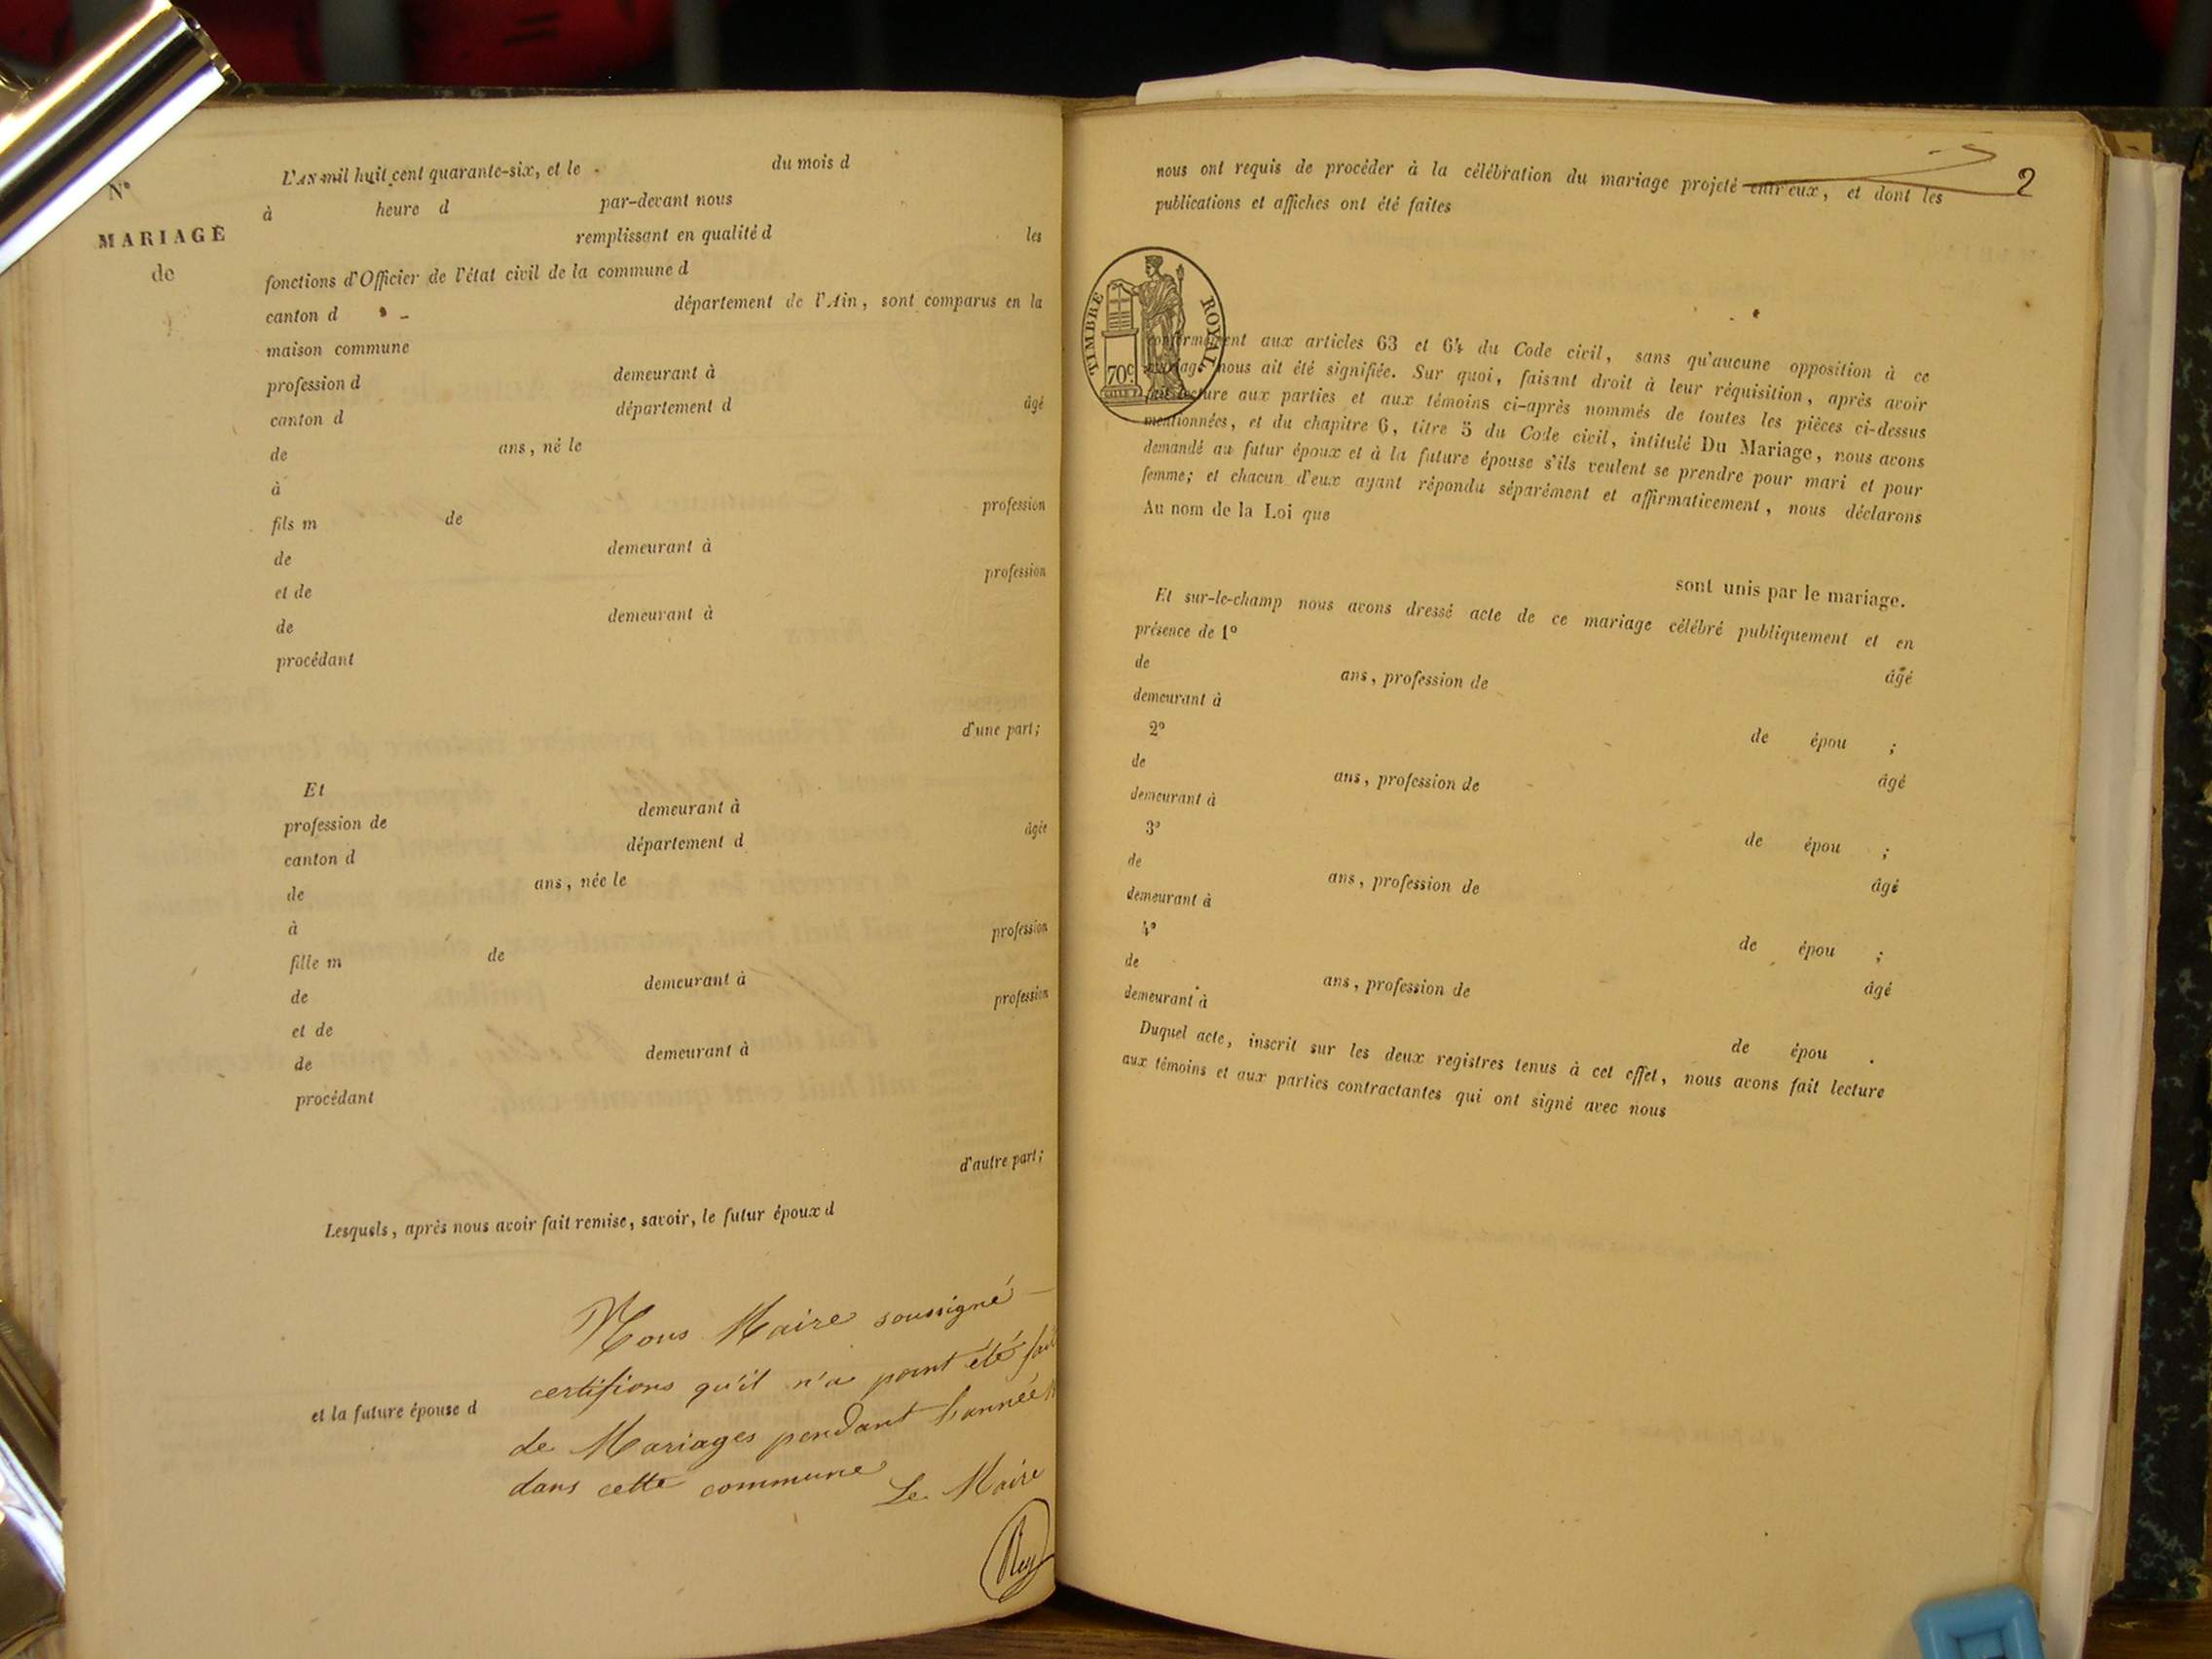 N°
MARIAGE
de
L'AN mil huit cent quarante-six, et le du mois d
à heure d par-devant nous
remplissant en qualité d les
fonctions d'Officier de l'état civil de la commune d
canton d département de l'Ain, sont comparus en la
maison commune
profession d demeurant à
canton d département d âgé
de ans, né le
à
fils m de profession
de demeurant à
et de profession
de demeurant à
procédant
d'une part;
Et
profession de demeurant à
canton d département d âgée
de ans, née le
à
fille m de profession
de demeurant à
et de profession
de demeurant à
procédant
d'autre part;
Lesquels, après nous avoir fait remise, savoir, le futur époux d
Nous Maire soussigné
certifions qu'il n'a point été fait
et la future épouse d
de Mariages pendant l'année
dans cette commune
Le Maire
Rey
2
nous ont requis de procéder à la célébration du mariage projeté entr'eux, et dont les
publications et affiches ont été faites
TIMBRE ROYAL
70c
conformément aux articles 63 et 64 du Code civil, sans qu'aucune opposition à ce
mariage nous ait été signifiée. Sur quoi, faisant droit à leur réquisition, après avoir
fait lecture aux parties et aux témoins ci-après nommés de toutes les pièces ci-dessus
mentionnées, et du chapitre 6, titre 5 du Code civil, intitulé Du Mariage, nous avons
demandé au futur époux et à la future épouse s'ils veulent se prendre pour mari et pour
femme; et chacun d'eux ayant répondu séparément et affirmativement, nous déclarons
Au nom de la Loi que
sont unis par le mariage.
Et sur-le-champ nous avons dressé acte de ce mariage célébré publiquement et en
présence de 1°
de ans, profession de âgé
demeurant à
2° de épou ;
de ans, profession de âgé
demeurant à
3° de épou ;
de ans, profession de âgé
demeurant à
4° de épou ;
de ans, profession de âgé
demeurant à
de épou .
Duquel acte, inscrit sur les deux registres tenus à cet effet, nous avons fait lecture
aux témoins et aux parties contractantes qui ont signé avec nous